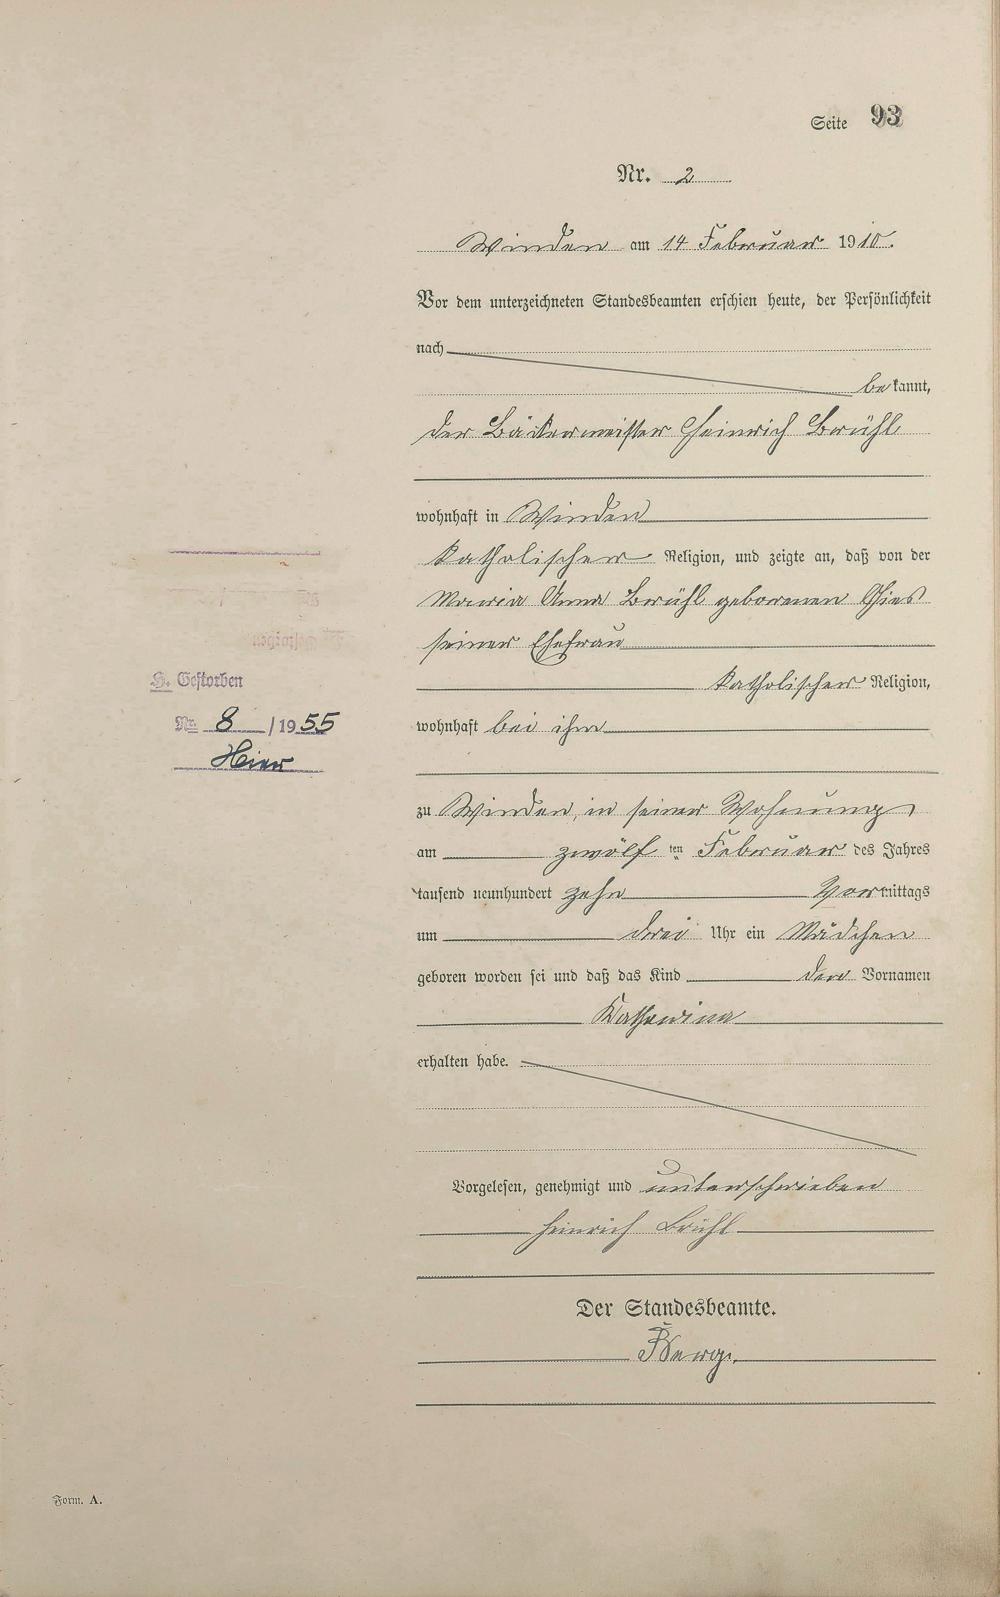 Seite 93
Nr. 2
Winden am 14 Februar 1910.
Vor dem unterzeichneten Standesbeamten erschien heute, der Persönlichkeit
nach
bekannt,
der Bäckermeister Heinrich Brühl
wohnhaft in Winden
katholischer Religion, und zeigte an, daß von der
Maria Anna Brühl geborenen Gies
seiner Ehefrau
katholischer Religion,
wohnhaft bei ihm
zu Winden, in seiner Wohnung,
am zwölf ten Februar des Jahres
tausend neunhundert zehn Vormittags
um drei Uhr ein Mädchen
geboren worden sei und daß das Kind den Vornamen
Katharina
erhalten habe.
Vorgelesen, genehmigt und unterschrieben
Heinrich Brühl
Der Standesbeamte.
Berg.
H. Gestorben
Nr. 8 / 1955
Hier
Form. A.